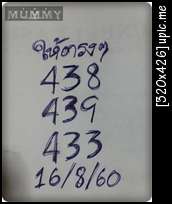 MUMMY
ให้ตรงๆ
438
439
433
16/8/60
[320x426] upic.me